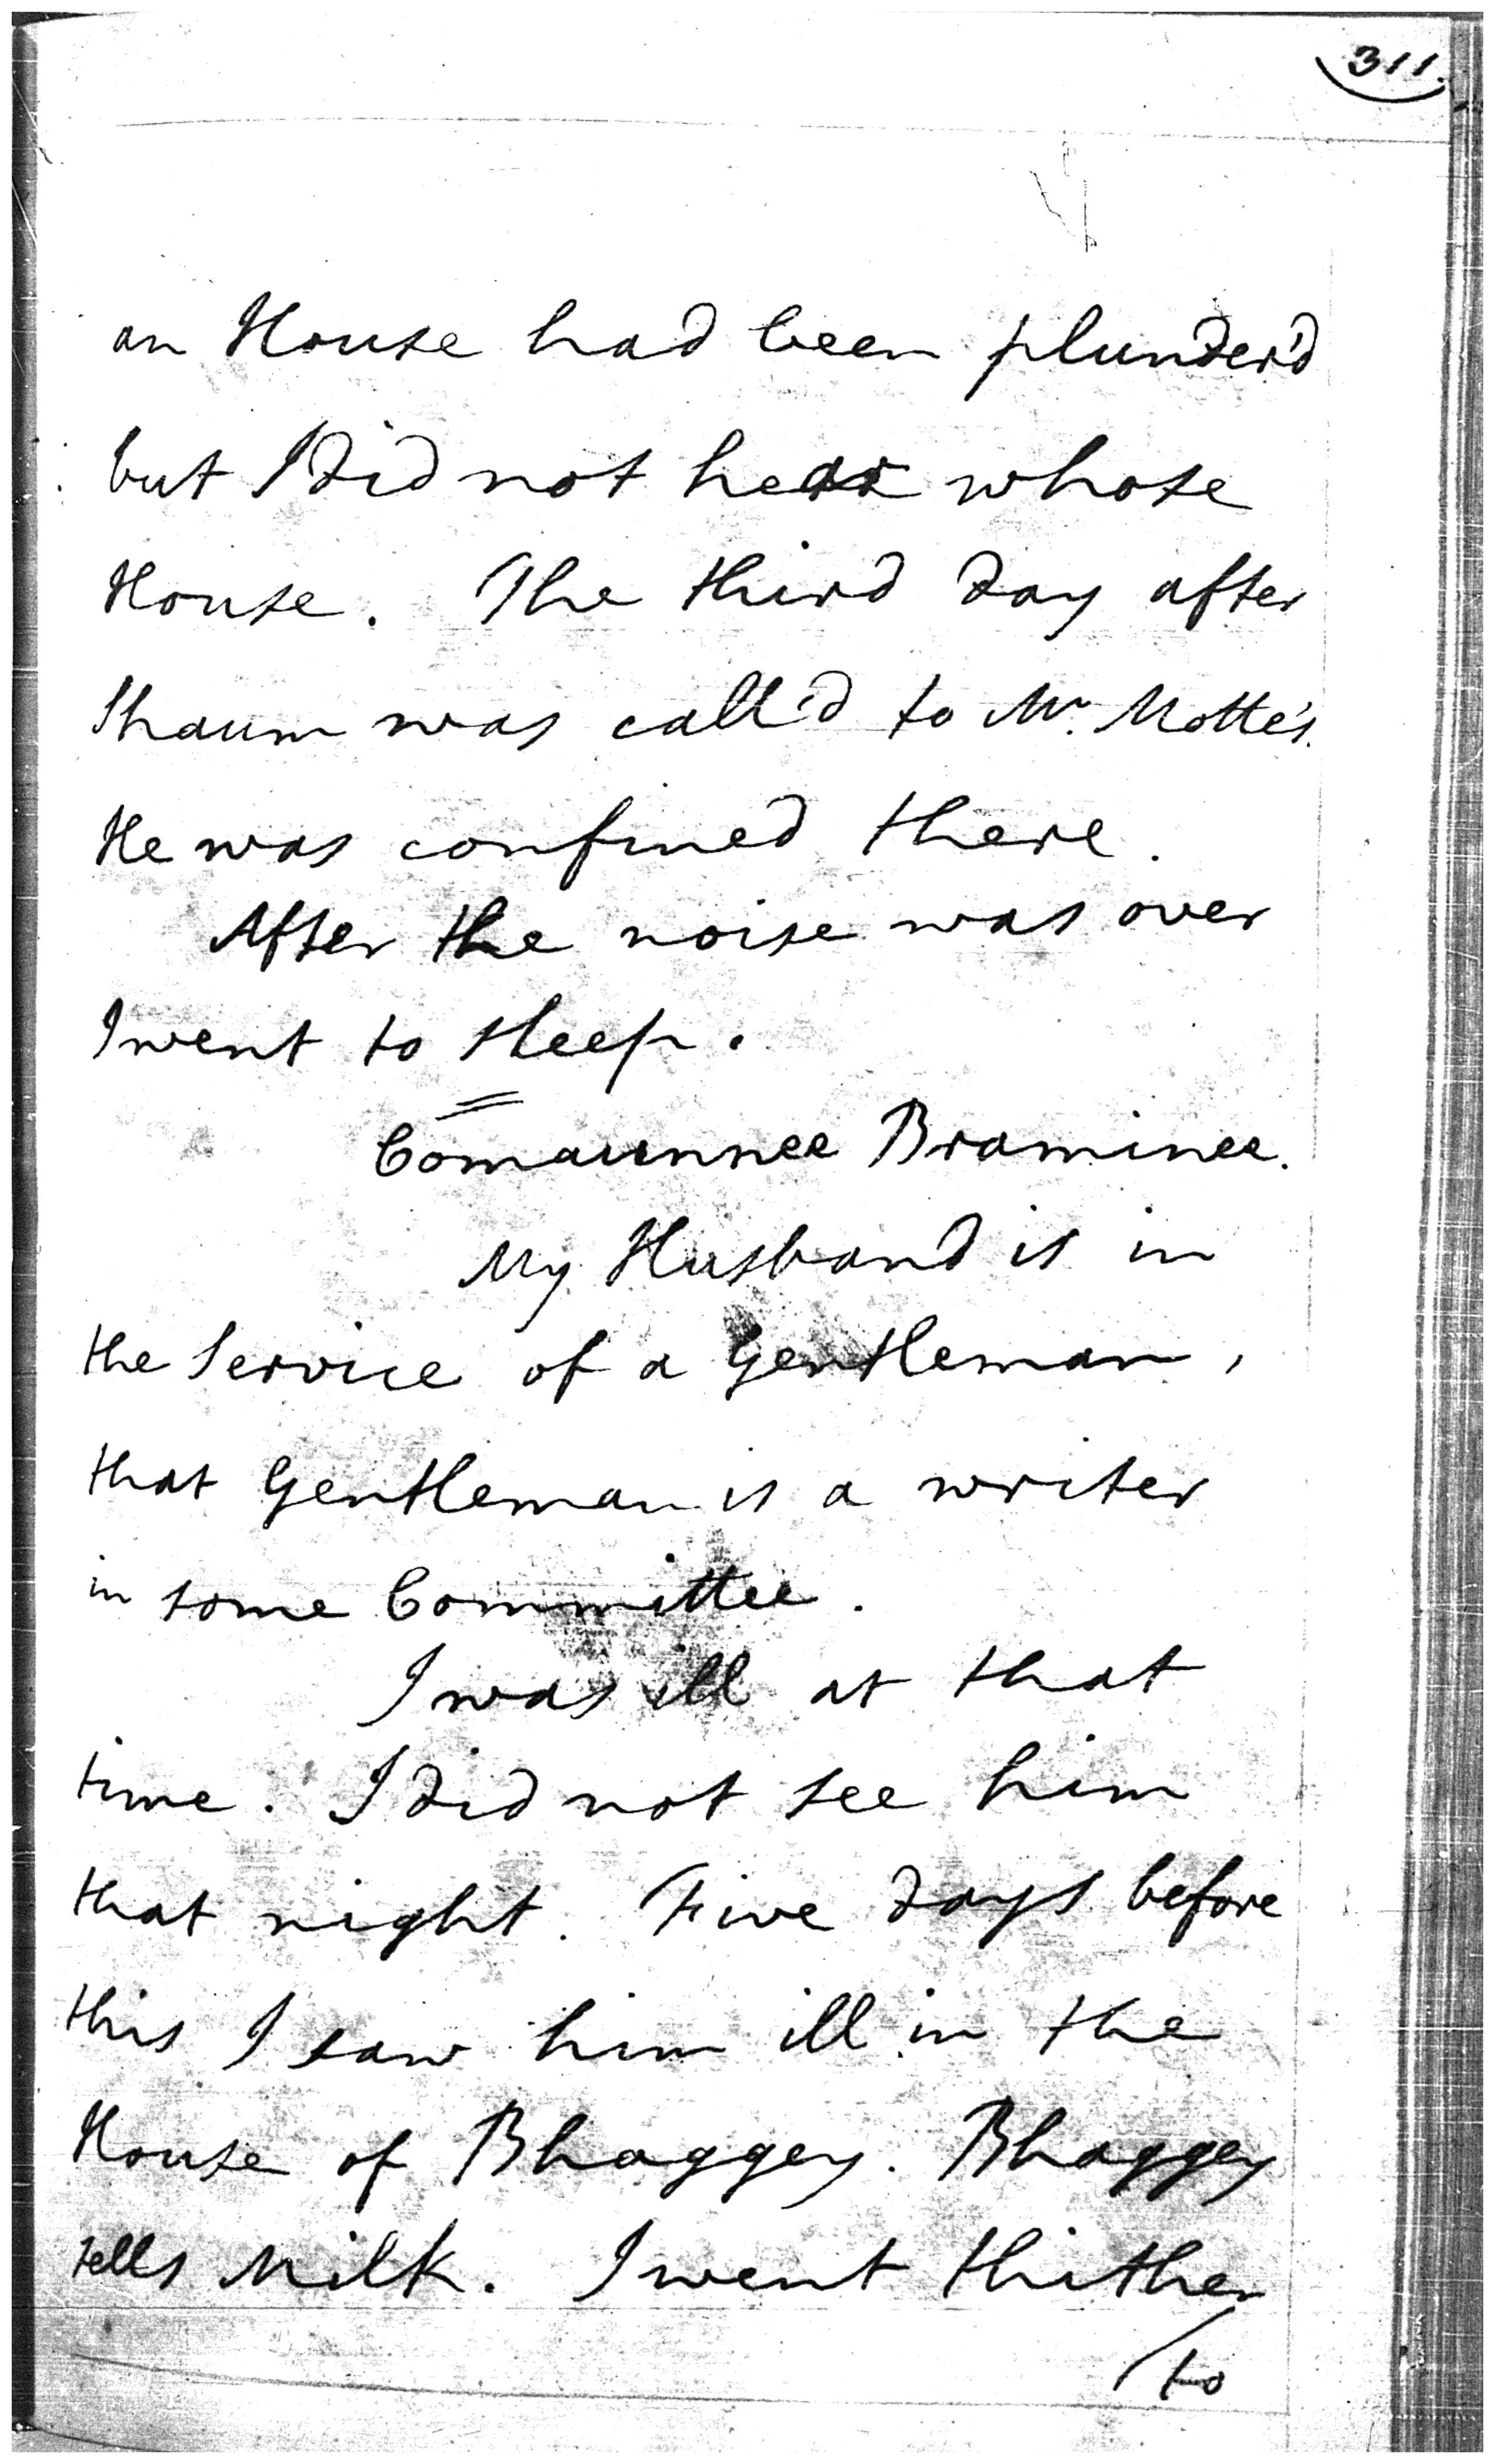 311.
an House had been plunder'd
but I did not hear whose
House. The third day after
Shaum was call'd to Mr. Motte's.
He was confined there.
After the noise was over
I went to sleep.
Comaunnee Braminee.
My Husband is in
the Service of a Gentleman,
that Gentleman is a writer
in some Committee.
I was ill at that
time. I did not see him
that night. Five days before
this I saw him ill in the
House of Bhaggey. Bhaggey
sells Milk. I went thither
to